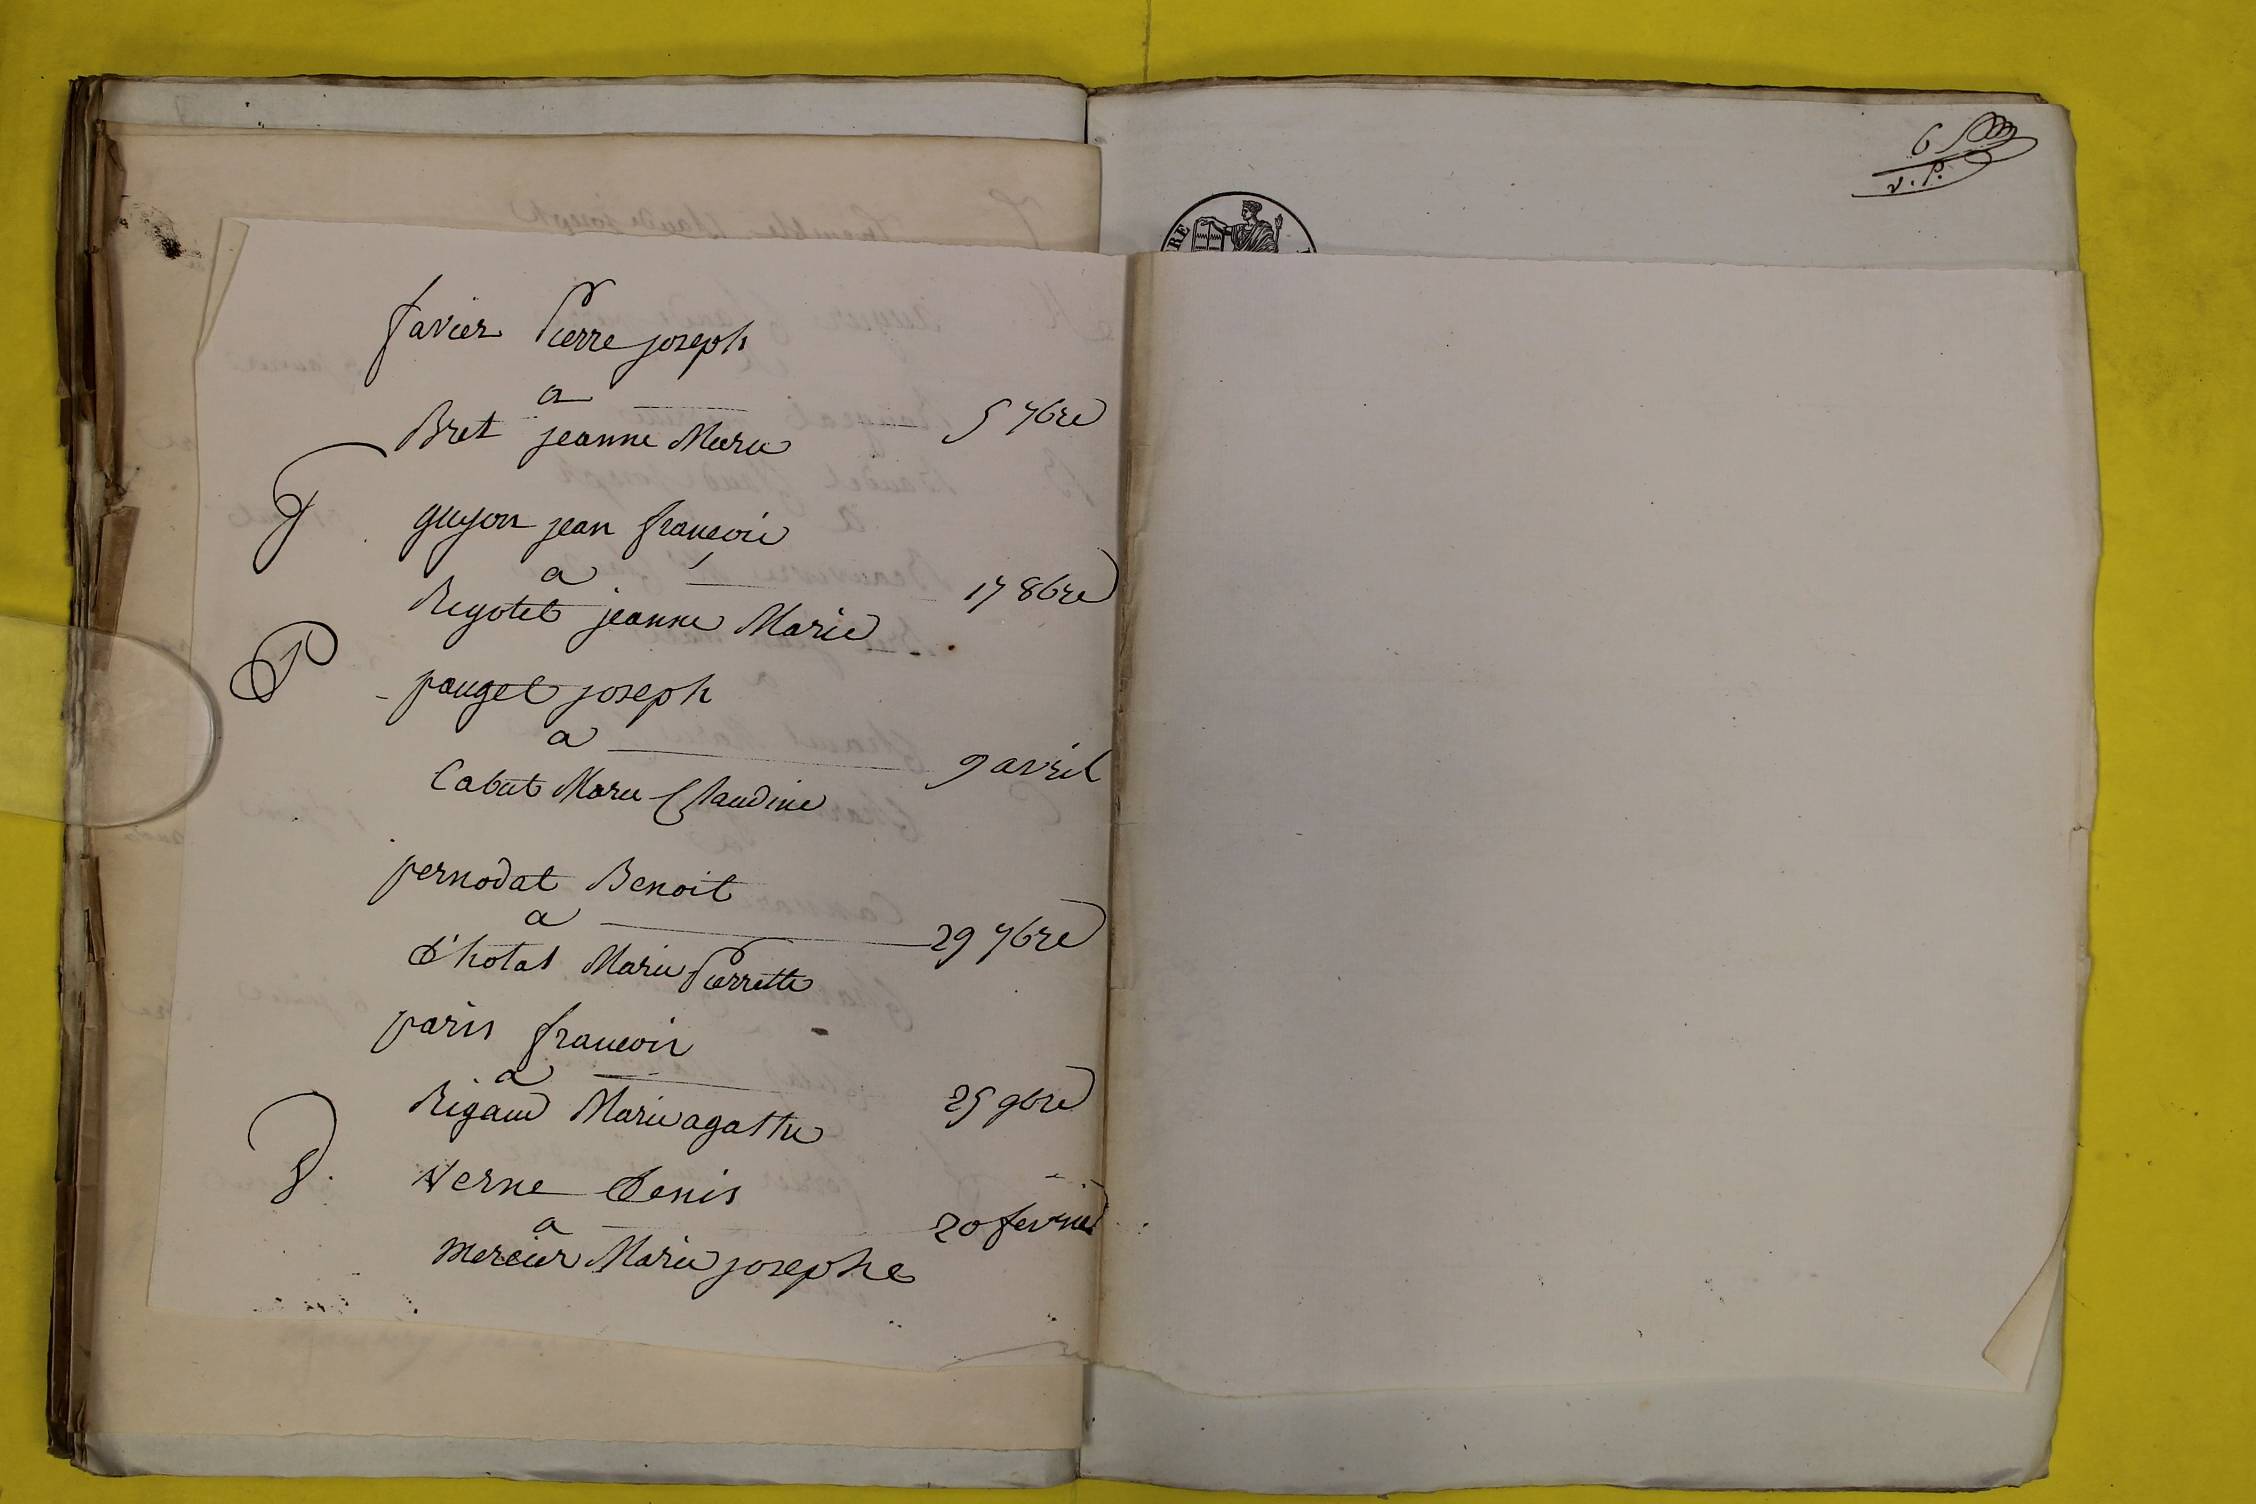 favier Pierre joseph
a
Bret jeanne Marie 5 7bre
G guyon jean francois
a
Rigotet jeanne Marie 17 8bre
P pauget joseph
a
Cabut Marie Claudine 9 avril
pernodat Benoit
a
d'hotat Marie Pierrette 29 7bre
paris francois
a
Rigaud Marie agathe 25 9bre
V verne denis
a
mercier Marie josephe 20 fevrier
6
v.P.